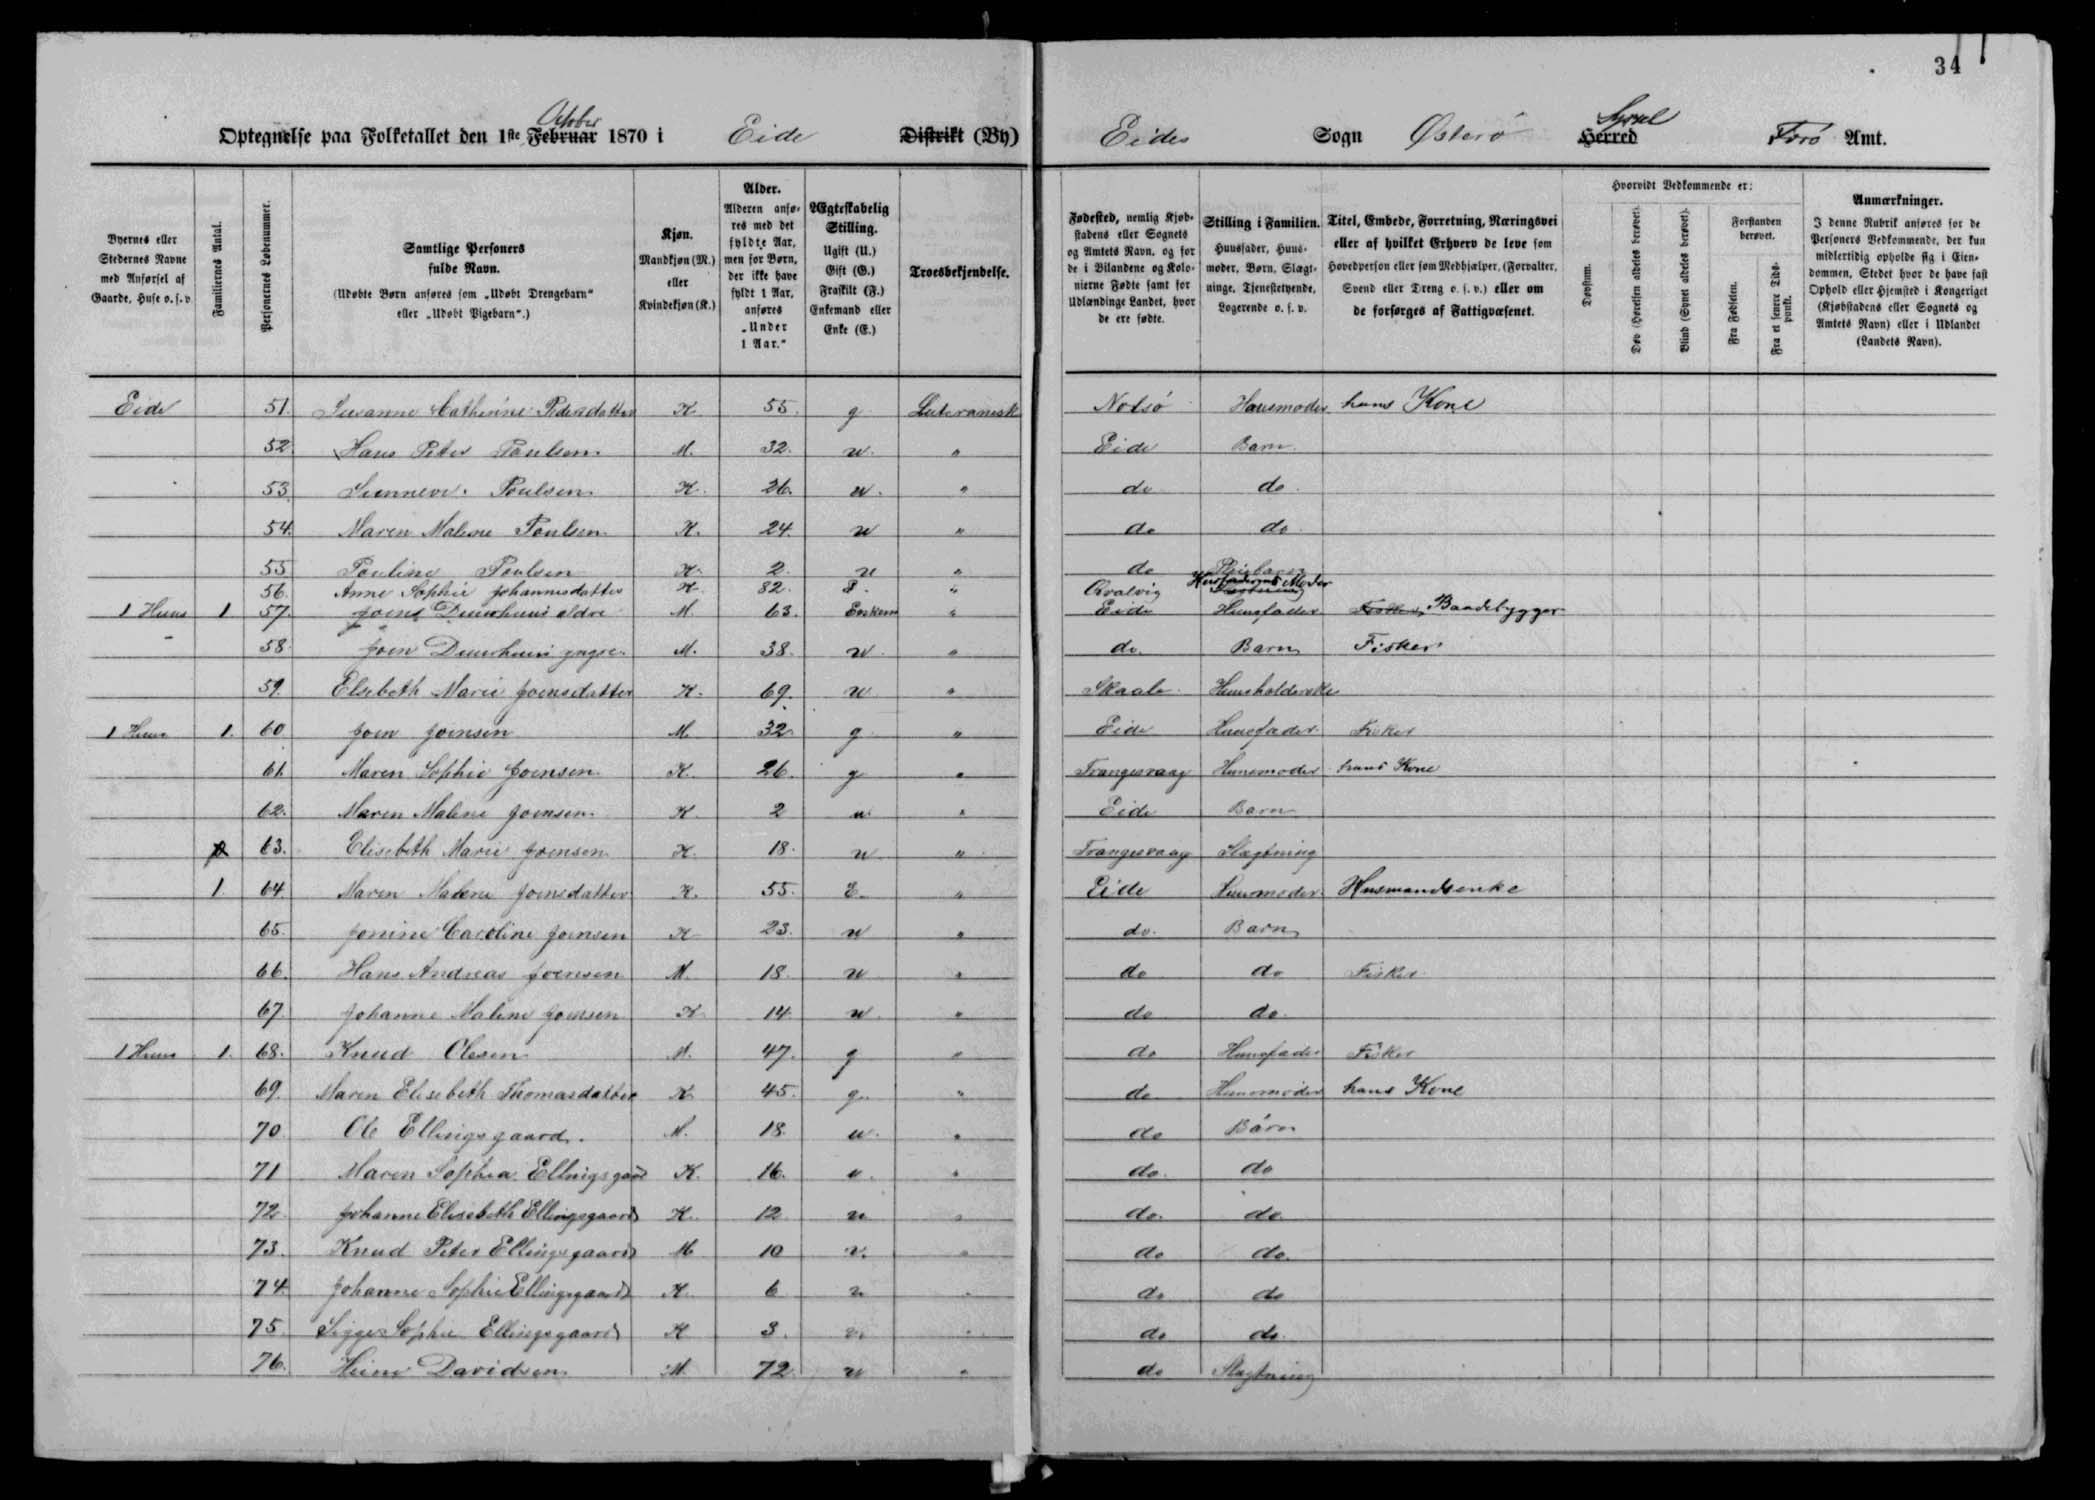 34
Optegnelse paa Folketallet den 1ste Februar October 1870 i Eide Distrikt (By) Eides Sogn Østerø Herred Syssel Færø Amt.
Byernes eller Stedernes Navne med Anførsel af Gaarde, Huse o. s. v.
Familiernes Antal.
Personernes Løbenummer.
Samtlige Personers fulde Navn.
(Udøbte Børn anføres som „Udøbt Drengebarn“ eller „Udøbt Pigebarn“.)
Kjøn.
Mandkjøn (M.) eller Kvindekjøn (K.)
Alder.
Alderen anføres med det fyldte Aar, men for Børn, der ikke have fyldt 1 Aar, anføres „Under 1 Aar.“
Ægteskabelig Stilling.
Ugift (U.) Gift (G.) Fraskilt (F.) Enkemand eller Enke (E.)
Troesbekjendelse.
Fødested, nemlig Kjøbstadens eller Sognets og Amtets Navn, og for de i Bilandene og Kolonierne Fødte samt for Udlændinge Landet, hvor de ere fødte.
Stilling i Familien.
Huusfader, Huusmoder, Børn, Slægtninge, Tjenestetyende, Logerende o. s. v.
Titel, Embede, Forretning, Næringsvei eller af hvilket Erhverv de leve som Hovedperson eller som Medhjælper, (Forvalter, Svend eller Dreng o. s. v.) eller om de forsørges af Fattigvæsenet.
Hvorvidt Vedkommende er:
Døvstum.
Døv (Hørelsen aldeles berøvet).
Blind (Synet aldeles berøvet).
Forstanden berøvet.
Fra Fødselen.
Fra et senere Tidspunkt.
Anmærkninger.
I denne Rubrik anføres for de Personers Vedkommende, der kun midlertidig opholde sig i Eiendommen, Stedet hvor de have fast Ophold eller Hjemsted i Kongeriget (Kjøbstadens eller Sognets og Amtets Navn) eller i Udlandet (Landets Navn).
Eide 51. Susanne Cathrine Pedersdatter K. 55. g Luteranesk Nolsö Huusmoder hans Kone
52. Hans Peter Poulsen M. 32. u. " Eide Barn
53. Sunneve Poulsen K. 26. u. " do do
54. Maren Malene Poulsen K. 24. u " do do
55. Pouline Poulsen K. 2. u " do Pleiebarn
56. Anne Sophie Johannesdatter K. 82. " Qvalvig Husfaderens Moder
1 Huus 1 57. Joen Duurhuus ældre M. 63. Enkem " Eide Huusfader Fisker, Baadebygger
58. Joen Duurhuus yngre M. 38. u. " do. Barn Fisker
59. Elsebeth Marie Joensdatter K. 69. u " Skaale Huusholderske
1 Huus 1. 60. Joen Joensen M. 32. g " Eide Huusfader Fisker
61. Maren Sophie Joensen K. 26. g " Trangesvaag Huusmoder hans Kone
62. Maren Malene Joensen K. 2 u " Eide Barn
63. Elisebeth Marie Joensen K. 18. u " Trangesvaag Slægtning
1. 64. Maren Malene Joensdatter K. 55. E. " Eide Huusmoder Husmandsenke
65. Jonine Caroline Joensen K 23. u " do. Barn
66. Hans Andreas Joensen M. 18. u " do do Fisker
67. Johanne Malene Joensen K 14. u " do do.
1 Huus 1. 68. Knud Olesen M. 47. g " do Huusfader Fisker
69. Maren Elisebeth Thomasdatter K 45. g. " do Huusmoder hans Kone
70. Ole Ellingsgaard. M. 18. u. " do Barn
71 Maren Sophia Ellingsgaard K. 16. u. " do. do
72. Johanne Elisebeth Ellingsgaard K. 12 u " do. do.
73. Knud Peter Ellingsgaard M 10 u. " do do.
74. Johanne Sophie Ellingsgaard K. 6 u " do do
75. Sigge Sophie Ellingsgaard K 3. u " do do.
76. Heine Davidsen M. 72 u " do Slægtning